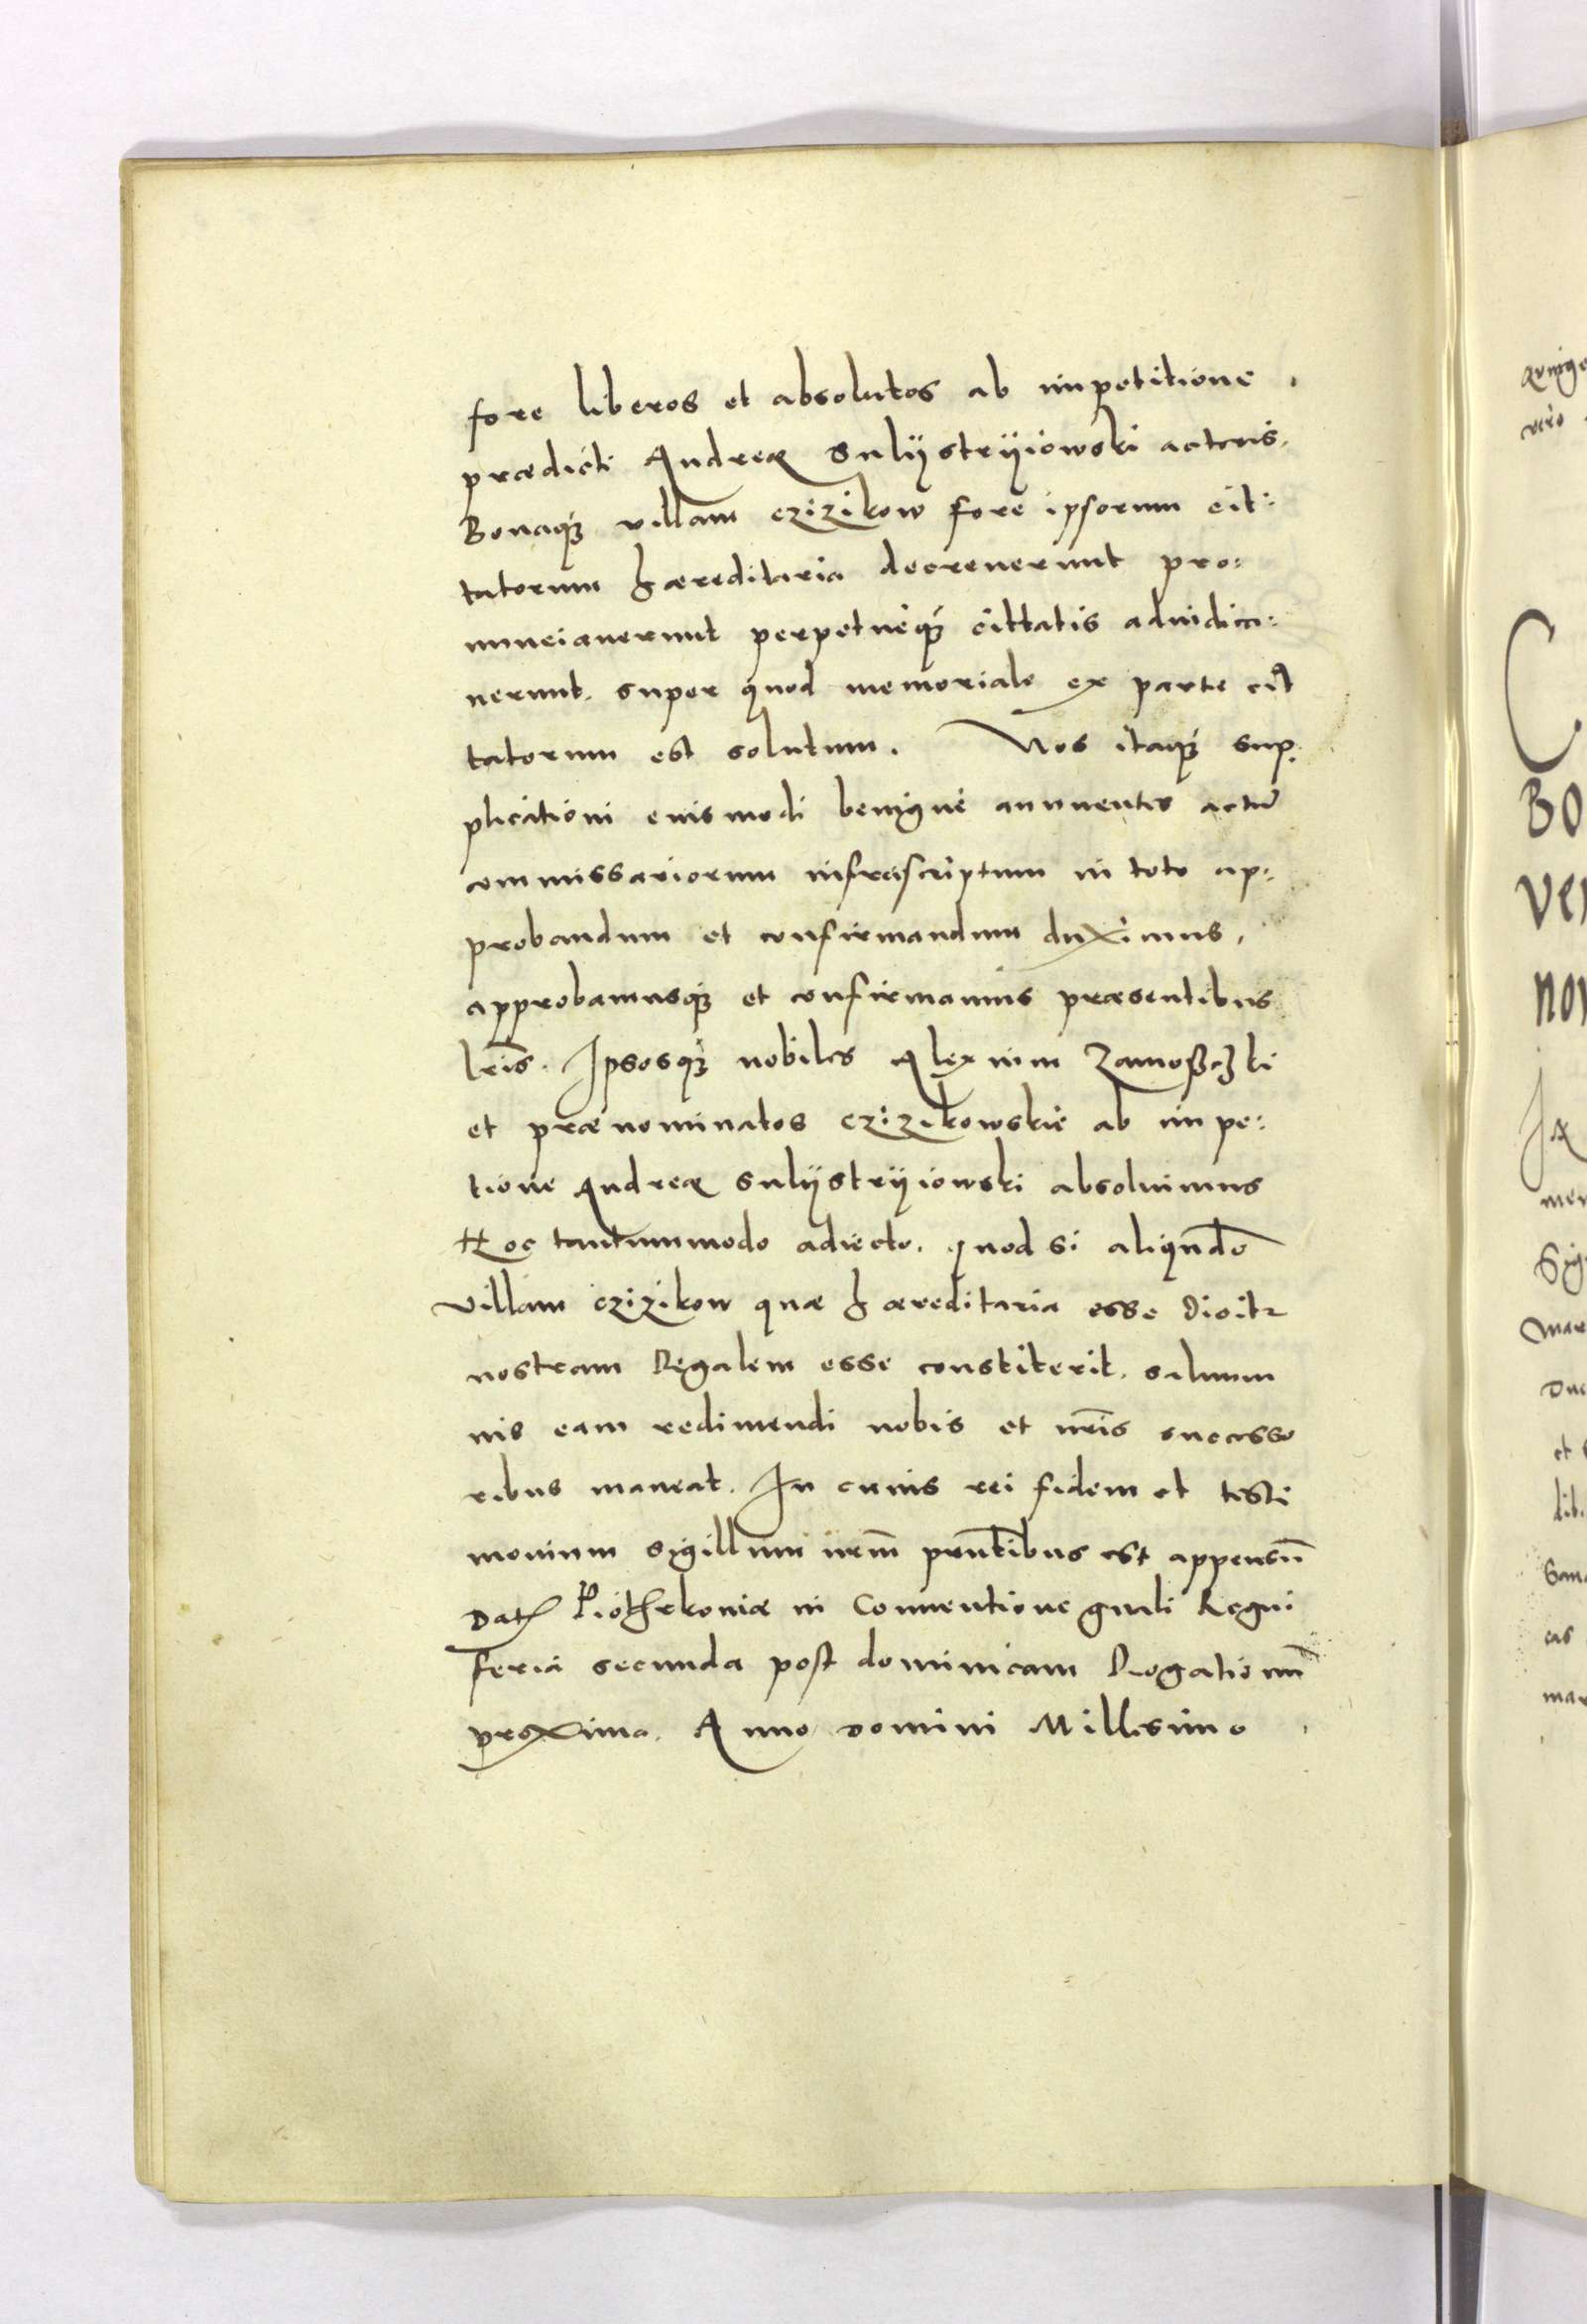 fore liberos et absolutos ab impetitione.
prædicti Andreæ Sulÿstrÿiowski actoris.
Bonaq3 villam czizikow fore ipsorum cit:
tatorum hæreditaria decreuerunt pro:
nunciauerunt perpetueq3 cittatis adiudica:
uerunt. super quod memoriale ex parte cit
tatorum est solutum. Nos itaq3 sup:
plicationi euismodi benigne annuentes actū
commissariorum infrascriptum in toto ap:
probandum et confirmandum duximus,
approbamusq3 et confirmamus præsentibus
lr̄is. Ipsosq3 nobiles Alexium Zamoszczki
et prænominatos czizikowskie ab impe:
tione Andreæ Sulÿstrÿiowski absoluimus
Hoc tantummodo adiecto. quod si aliqn̄do
villam czizikow quæ hæreditaria esse dicitr
nostram Regalem esse constiterit. saluum
ius eam redimendi nobis et nr̄is successo
ribus maneat. In cuius rei fidem et testi
monium sigillum nrm̄ prn̄tibus est appensū
Dat Piothrkoniæ in Conuentione gn̄rali Regni
feria secunda post dominicam Rogationū
proxima. Anno domini Millesimo